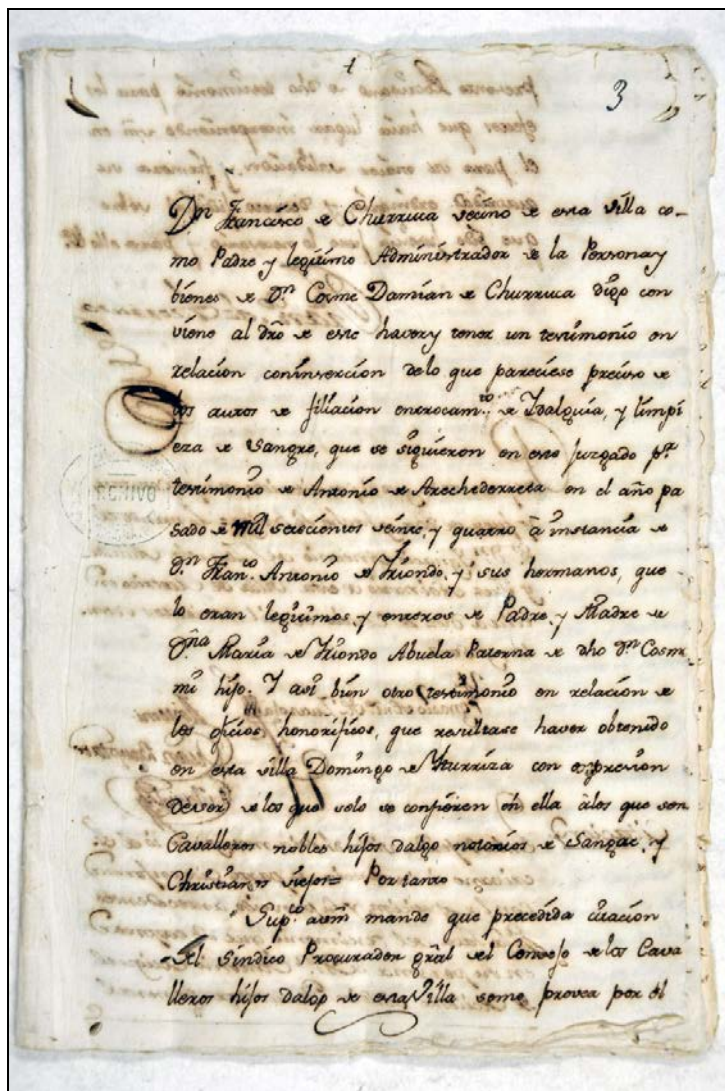 3
Dn. Francisco de Churruca vecino de esta villa co-
mo Padre y legitimo Administrador de la Persona y
bienes de Dn. Cosme Damian de Churruca digo con
viene al dro de este haver y tener un testimonio en
relacion con insercion de lo que pareciese preciso de
los autos de filiacion entrocam.to de Idalguia, y limpi
eza de Sangre, que se siguieron en este juzgado pr.
testimonio de Antonio de Arechederreta en el año pa
sado de mil setecientos veinte, y quatro à instancia de
Dn. Fran.co Antonio de Yriondo, y sus hermanos, que
lo eran legitimos, y enteros de Padre, y Madre de
Dña Maria de Yriondo Abuela Paterna de dho Dn. Cosme
mi hijo. Y asi bien otro testimonio en relacion de
los oficios, honorificos, que resultase haver obtenido
en esta villa Domingo de Yturriza con expresion
de ser de los que solo se confieren en ella à los que son
Cavalleros nobles hijos dalgo notorios de Sangre, y
Christianos viejos= Por tanto
Sup.co avm mande que precedida citacion
del Sindico Procurador gral del Consejo de los Cava
lleros hijos dalgo de esta Villa seme provea por el